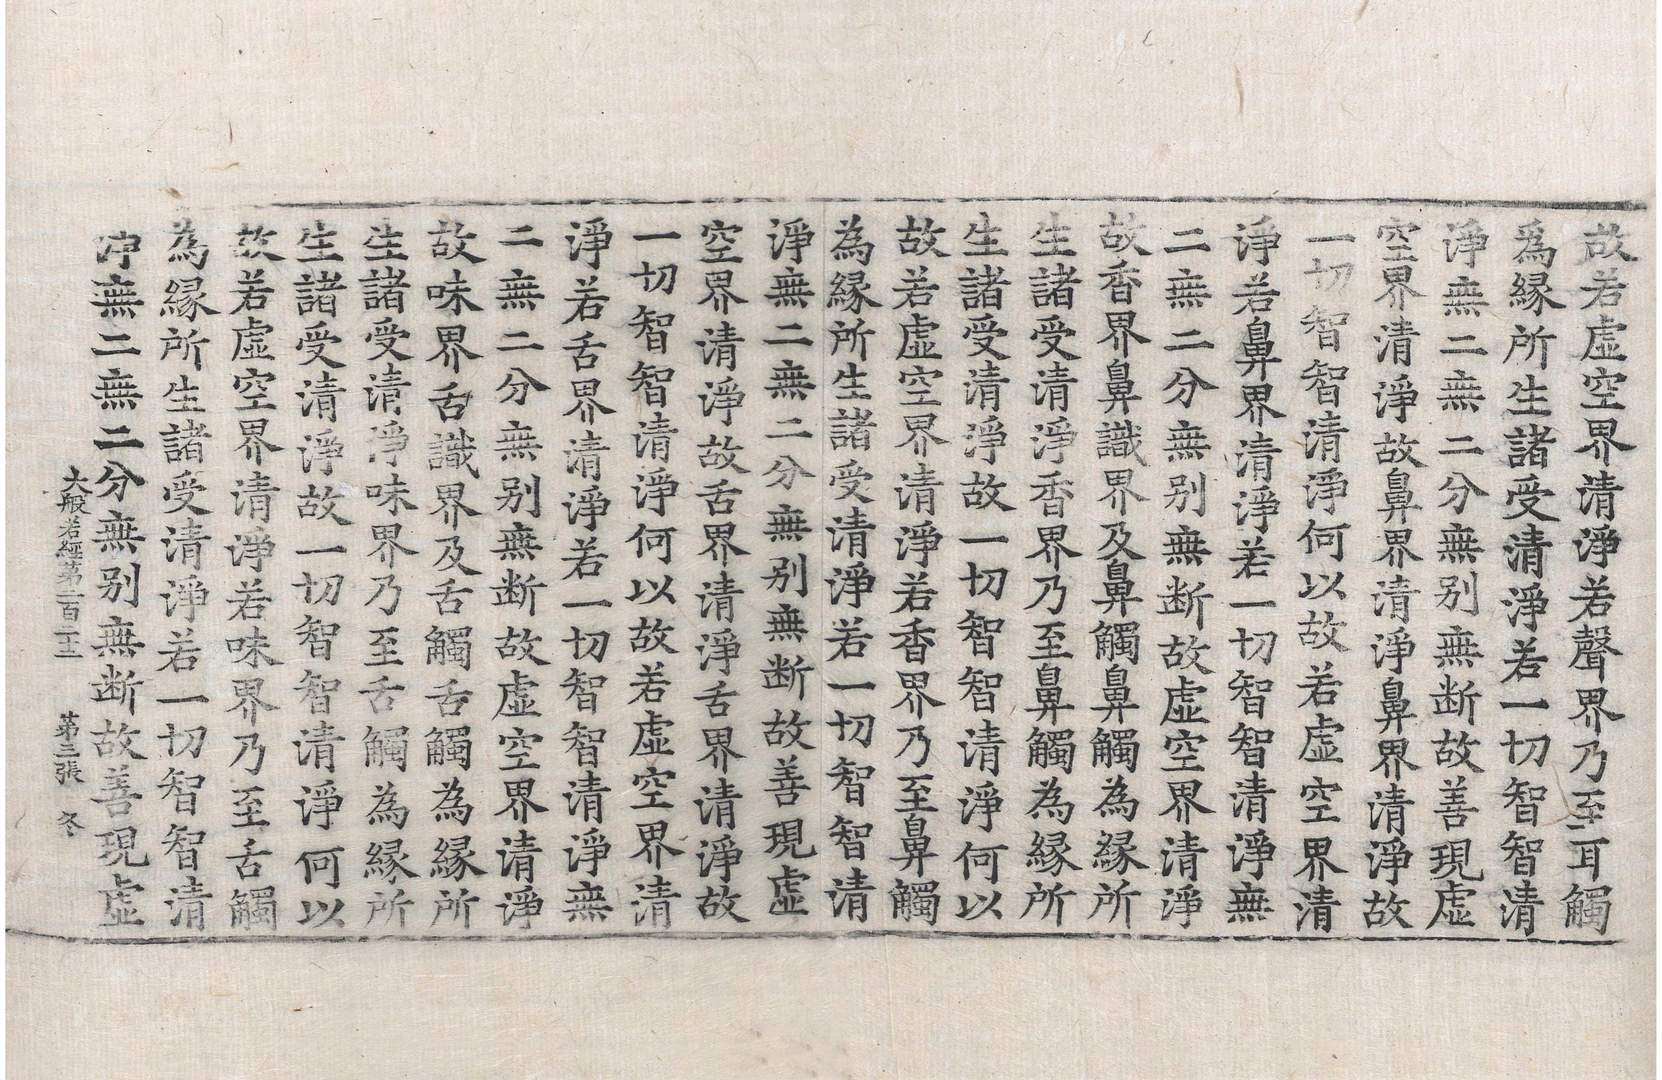 故若虛空界清淨若聲界乃至耳觸
爲緣所生諸受清淨若一切智智清
淨無二無二分無别無断故善現虛
空界清淨故鼻界清淨鼻界清淨故
一切智智清淨何以故若虛空界清
淨若鼻界清淨若一切智智清淨無
二無二分無别無断故虛空界清淨
故香界鼻識界及鼻觸鼻觸為緣所
生諸受清淨香界乃至鼻觸為緣所
生諸受清淨故一切智智清淨何以
故若虛空界清淨若香界乃至鼻觸
為緣所生諸受清淨若一切智智清
淨無二無二分無别無断故善現虛
空界清淨故舌界清淨舌界清淨故
一切智智清淨何以故若虛空界清
淨若舌界清淨若一切智智清淨無
二無二分無别無断故虛空界清淨
故味界舌識界及舌觸舌觸為緣所
生諸受清淨味界乃至舌觸為緣所
生諸受清淨故一切智智清淨何以
故若虛空界清淨若味界乃至舌觸
為緣所生諸受清淨若一切智智清
淨無二無二分無别無断故善現虛
大般若經第二百 第三張 冬